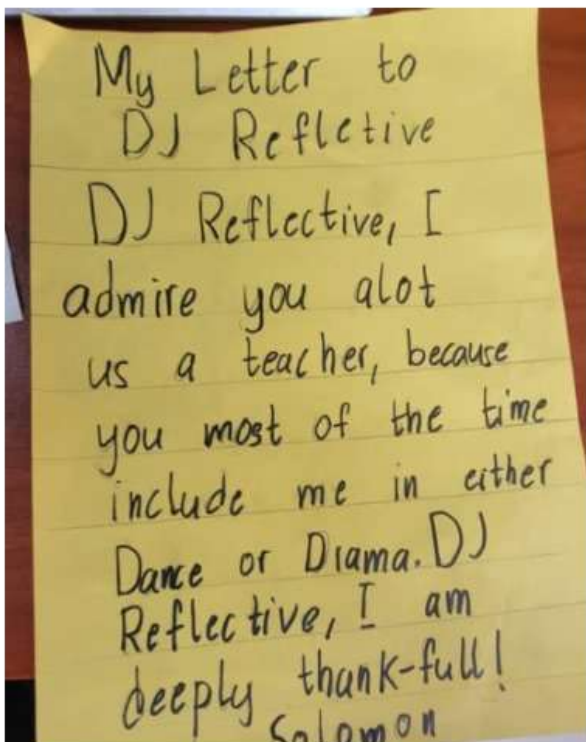 My Letter to
DJ Refletive
DJ Reflective, I
admire you alot
us a teacher, because
you most of the time
include me in either
Dance or Drama. DJ
Reflective, I am
deeply thank-full!
Solomon